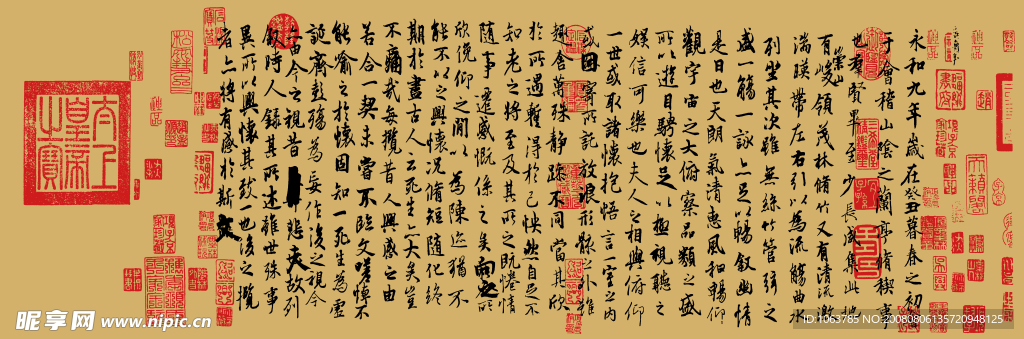 永和九年歲在癸丑暮春之初會
于會稽山陰之蘭亭脩稧事
也群賢畢至少長咸集此地
有崇山峻領茂林脩竹又有清流激
湍暎帶左右引以為流觴曲水
列坐其次雖無絲竹管弦之
盛一觴一詠亦足以暢敘幽情
是日也天朗氣清惠風和暢仰
觀宇宙之大俯察品類之盛
所以遊目騁懷足以極視聽之
娛信可樂也夫人之相與俯仰
一世或取諸懷抱悟言一室之內
或因寄所託放浪形骸之外雖
趣舍萬殊靜躁不同當其欣
於所遇暫得於己怏然自足不
知老之將至及其所之既惓情
隨事遷感慨係之矣向之所
欣俛仰之閒以為陳迹猶不
能不以之興懷況脩短隨化終
期於盡古人云死生亦大矣豈
不痛哉每攬昔人興感之由
若合一契未嘗不臨文嗟悼不
能喻之於懷固知一死生為虛
誕齊彭殤為妄作後之視今
亦由今之視昔悲夫故列
敘時人錄其所述雖世殊事
異所以興懷其致一也後之攬
者亦將有感於斯文
太上皇帝之寶
昵享网 www.nipic.cn
ID:1063785 NO:20080806135720948125